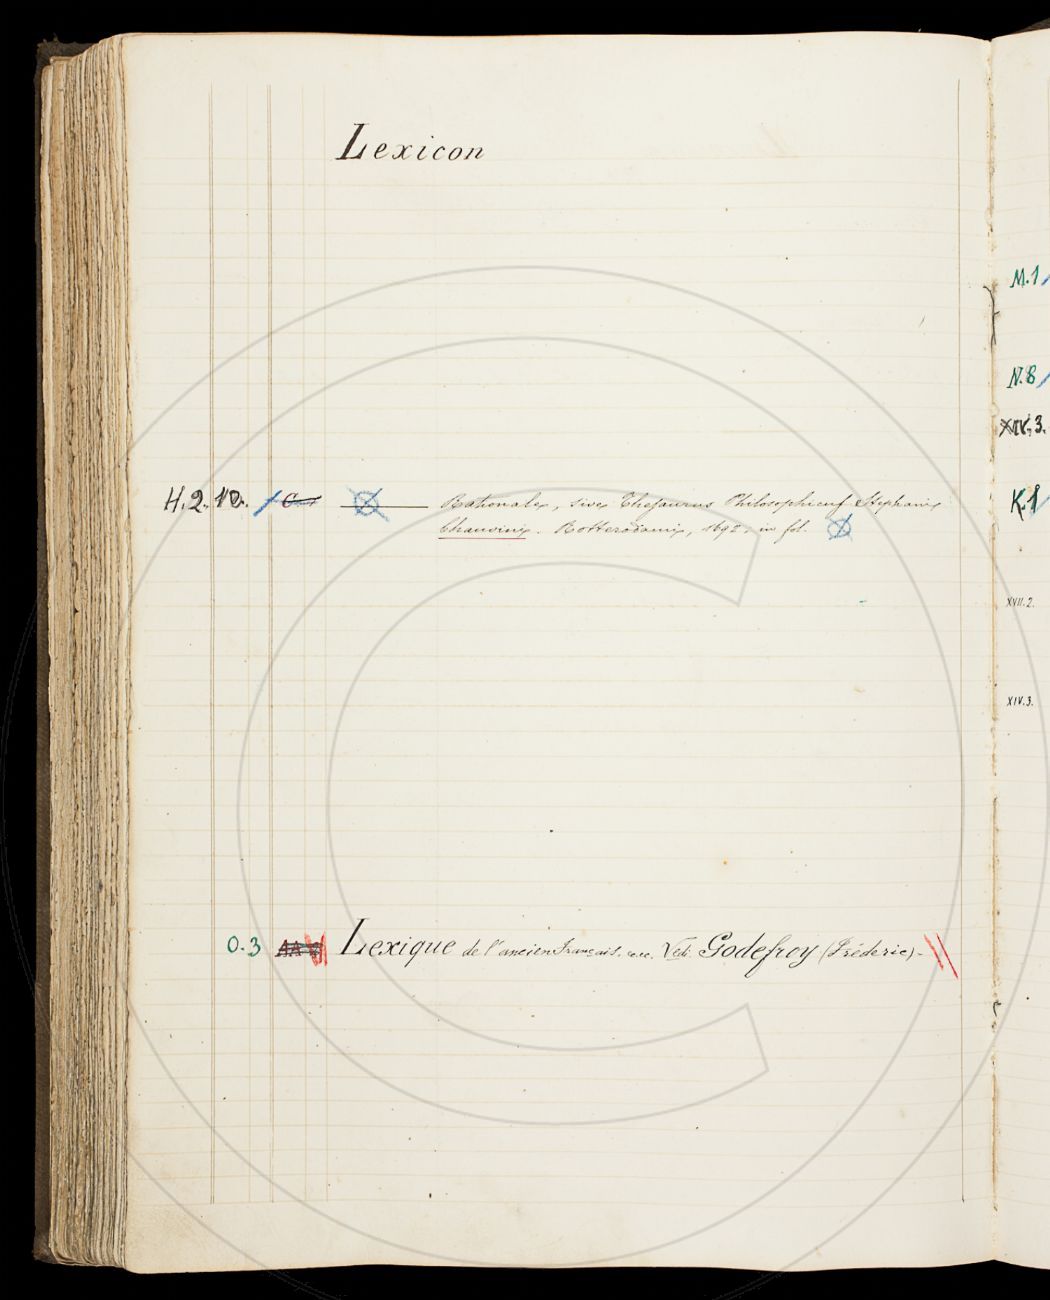 Lexicon
H. 2. 10. C. Rationale, sive Thesaurus Philosophicus Stephani
Chauvini. Rotterodami, 1692, in fol.
O. 3 Lexique de l'ancien français. ecc. Vedi Godefroy (Fréderic).
M. 1
N. 8
XIV. 3.
K. 1
XVII. 2.
XIV. 3.